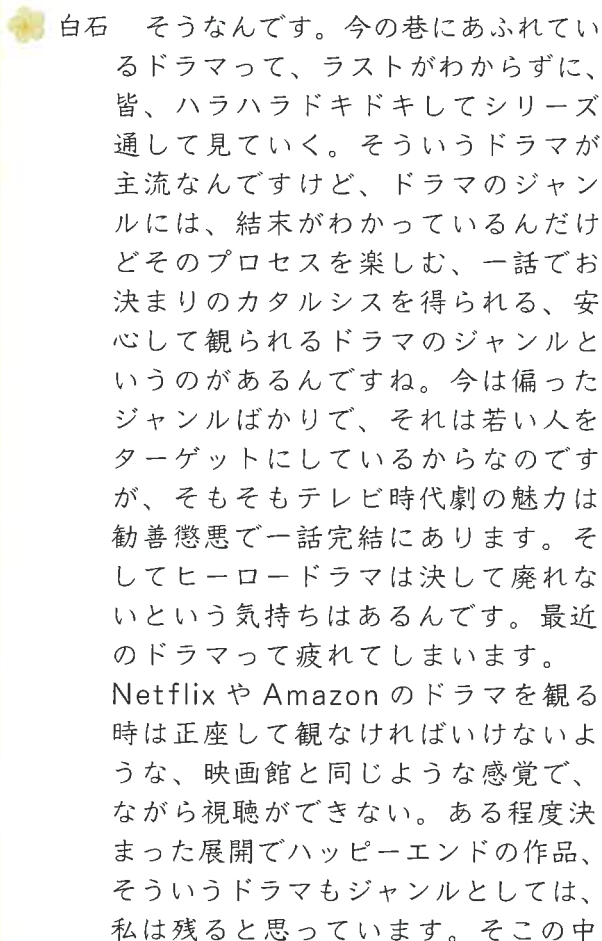 白石　そうなんです。今の巷にあふれてい
るドラマって、ラストがわからずに、
皆、ハラハラドキドキしてシリーズ
通して見ていく。そういうドラマが
主流なんですけど、ドラマのジャン
ルには、結末がわかっているんだけ
どそのプロセスを楽しむ、一話でお
決まりのカタルシスを得られる、安
心して観られるドラマのジャンルと
いうのがあるんですね。今は偏った
ジャンルばかりで、それは若い人を
ターゲットにしているからなのです
が、そもそもテレビ時代劇の魅力は
勧善懲悪で一話完結にあります。そ
してヒーロードラマは決して廃れな
いという気持ちはあるんです。最近
のドラマって疲れてしまいます。
NetflixやAmazonのドラマを観る
時は正座して観なければいけないよ
うな、映画館と同じような感覚で、
ながら視聴ができない。ある程度決
まった展開でハッピーエンドの作品、
そういうドラマもジャンルとしては、
私は残ると思っています。そこの中